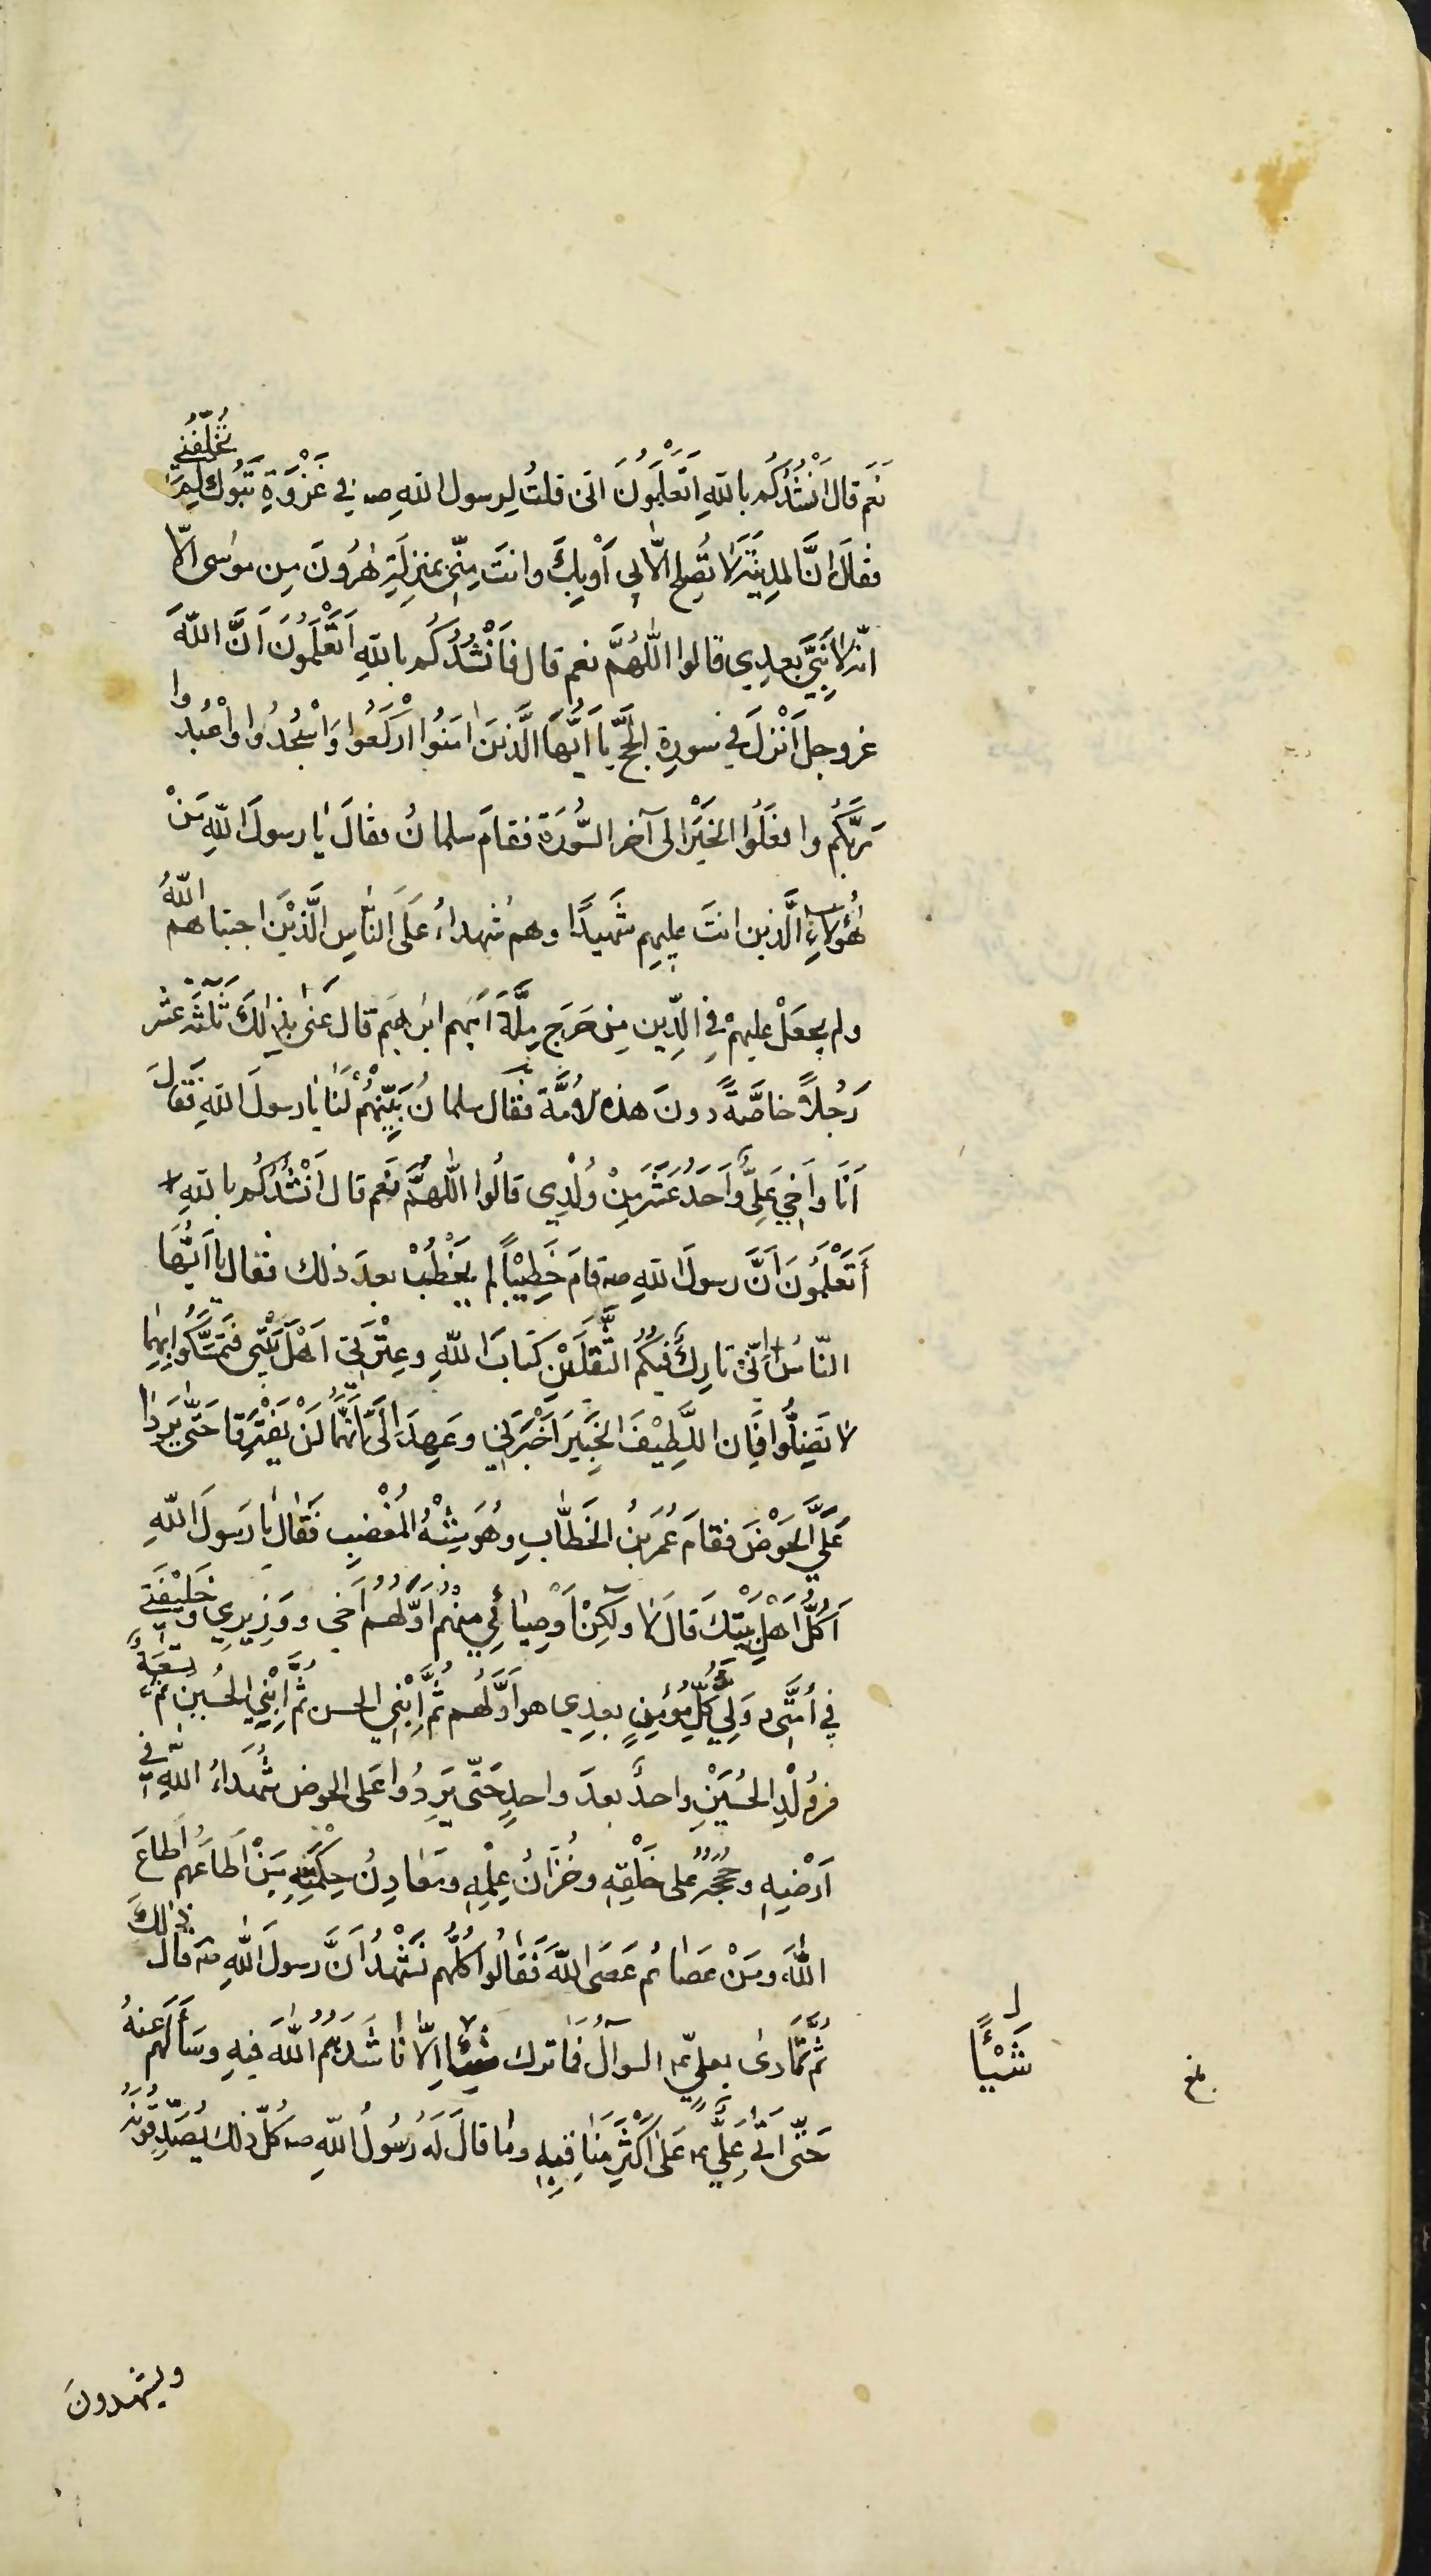 نَعَم قال اَنْشُدُكُم بالله اَتَعْلَمُونَ انّى قلتُ لِرسول اللهِ صـ فى غَزْوَةِ تَبُوك لِمَ تُخَلِّفُنى
فقالَ انَّ المدينَةَ لا تَصلح الّا بى اَوْ بِكَ وانتَ مِنّى بمنزلَةِ هٰرُونَ مِن موسٰى الّا
انّه لا نَبِىَّ بعدِى قالوا اللّٰهُمَّ نعم قال فَاَنْشُدُكُم باللهِ اَتَعْلَمُونَ اَنَّ اللّهَ
عز وجل اَنْزَلَ فى سورة الحَجّ يا اَيُّهَا الَّذينَ اٰمَنُوا ارْكَعُوا وَاسْجُدُوا وَاعْبُدُوا
رَبَّكُم وافعَلُوا الخَيْرَ الى آخر السُّورَة فقامَ سلمانُ فقالَ يٰا رسولَ اللّهِ مَنْ
هٰؤُلاءِ الَّذين انتَ عليهِم شَهيدًا وهم شهداءُ عَلَى النّاسِ الَّذيْنَ اجتباهم اللّهُ
ولم يجعَلْ عليهِمْ فِى الدِّين مِن حَرَجٍ مِلَّةَ اَبيهِم ابرٰهيم قال عَنىٰ بِذٰلكَ ثَلٰثَةَ عشر
رَجُلاً خاصَّةً دونَ هذه الاُمَّة فقال سلمانُ بَيِّنْهُمْ لَنٰا يٰا رسولَ اللهِ فَقالَ
اَنَا وَاَخِى عَلِىٌّ وَاَحَدَ عَشَرَ مِنْ وُلْدِى قالُوا اللّٰهُمَّ نَعم قال اَنْشُدُكُم باللهِ
أَتَعْلَمُونَ اَنَّ رسولَ اللهِ صـ قامَ خَطِيْبًا لم يَخْطُبْ بعدَ ذلك فقال يا اَيُّهَا
النّاسُ اِنّى تارِكٌ فيكُم الثَّقَلَيْن كتابَ اللّهِ وعِتْرَتى اَهْلَ بَيْتى فَتَمَسَّكُوا بِهِمٰا
لا تَضِلُّوا فَاِن اللَّطِيْفَ الخَبيْرَ اَخْبَرَنى وعَهِدَ اِلَىَّ اَنَّهُمٰا لَنْ يَفْتَرِقٰا حَتّٰى يَرِدٰا
عَلَىَّ الحَوْضَ فقامَ عُمَرُ بْنُ الخَطّٰابِ وهُوَ شِبْهُ المُغْضَبِ فَقٰالَ يٰا رَسولَ اللّهِ
اَكُلُّ اَهْلِ بَيْتِكَ قالَ لٰا ولٰكِنْ اَوْصِيٰائِى مِنهُم اَوَّلُهُم اَخى ووَزِيرِى وخَلِيْفَتى
فى اُمَّتى ووَلِىُّ كُلِّ مُؤمِنٍ بعدِى هو اَوَّلُهُم ثُمَّ اِبْنِى الحسن ثُمَّ اِبْنِى الحُسين ثمّ تِسْعَةٌ
من وُلْدِ الحُسَيْنِ واحدٌ بعدَ واحدٍ حَتّى يَرِدُوا عَلى الحوض شُهَداءُ اللّهِ فى
اَرْضِهِ وحُجَجُهُ على خَلْقِهِ وخُزّانُ عِلْمِهِ ومَعٰادِنُ حِكْمَتِهِ مَنْ اَطَاعَهُم اَطاعَ
اللّٰهَ ومَنْ عَصٰاهُم عَصَى اللّٰهَ فَقٰالُوا كُلُّهُم نَشْهَدُ اَنَّ رسولَ اللّٰهِ صـ قال ذٰلِكَ
ثُمَّ تَمٰادىٰ بعلىٍّ ع السوال فَمٰا ترك شيئا اِلّٰا نٰاشَدَهُمُ اللّٰهَ فيهِ وسَأَلَهُم عَنهُ
شَيْئًا
بلغ
حَتّٰى اَتى عَلىٌّ ع عَلىٰ اَكْثَرِ مَنٰاقِبِهِ ومٰا قالَ لَهُ رَسُولُ اللّهِ صـ كُلَّ ذٰلك يُصَدِّقُونَهُ
ويشهدونَ